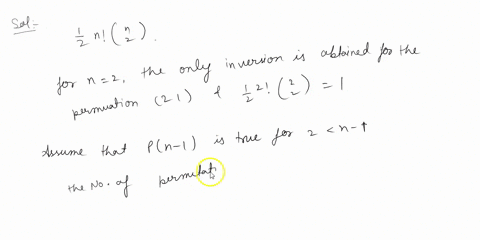 Sol:-
1/2 n! (n 2).
for n=2, the only inversion is obtained for the
permuation (2 1) & 1/2 2! (2 2) = 1
Assume that P(n-1) is true for 2 < n-1
the No. of permutat